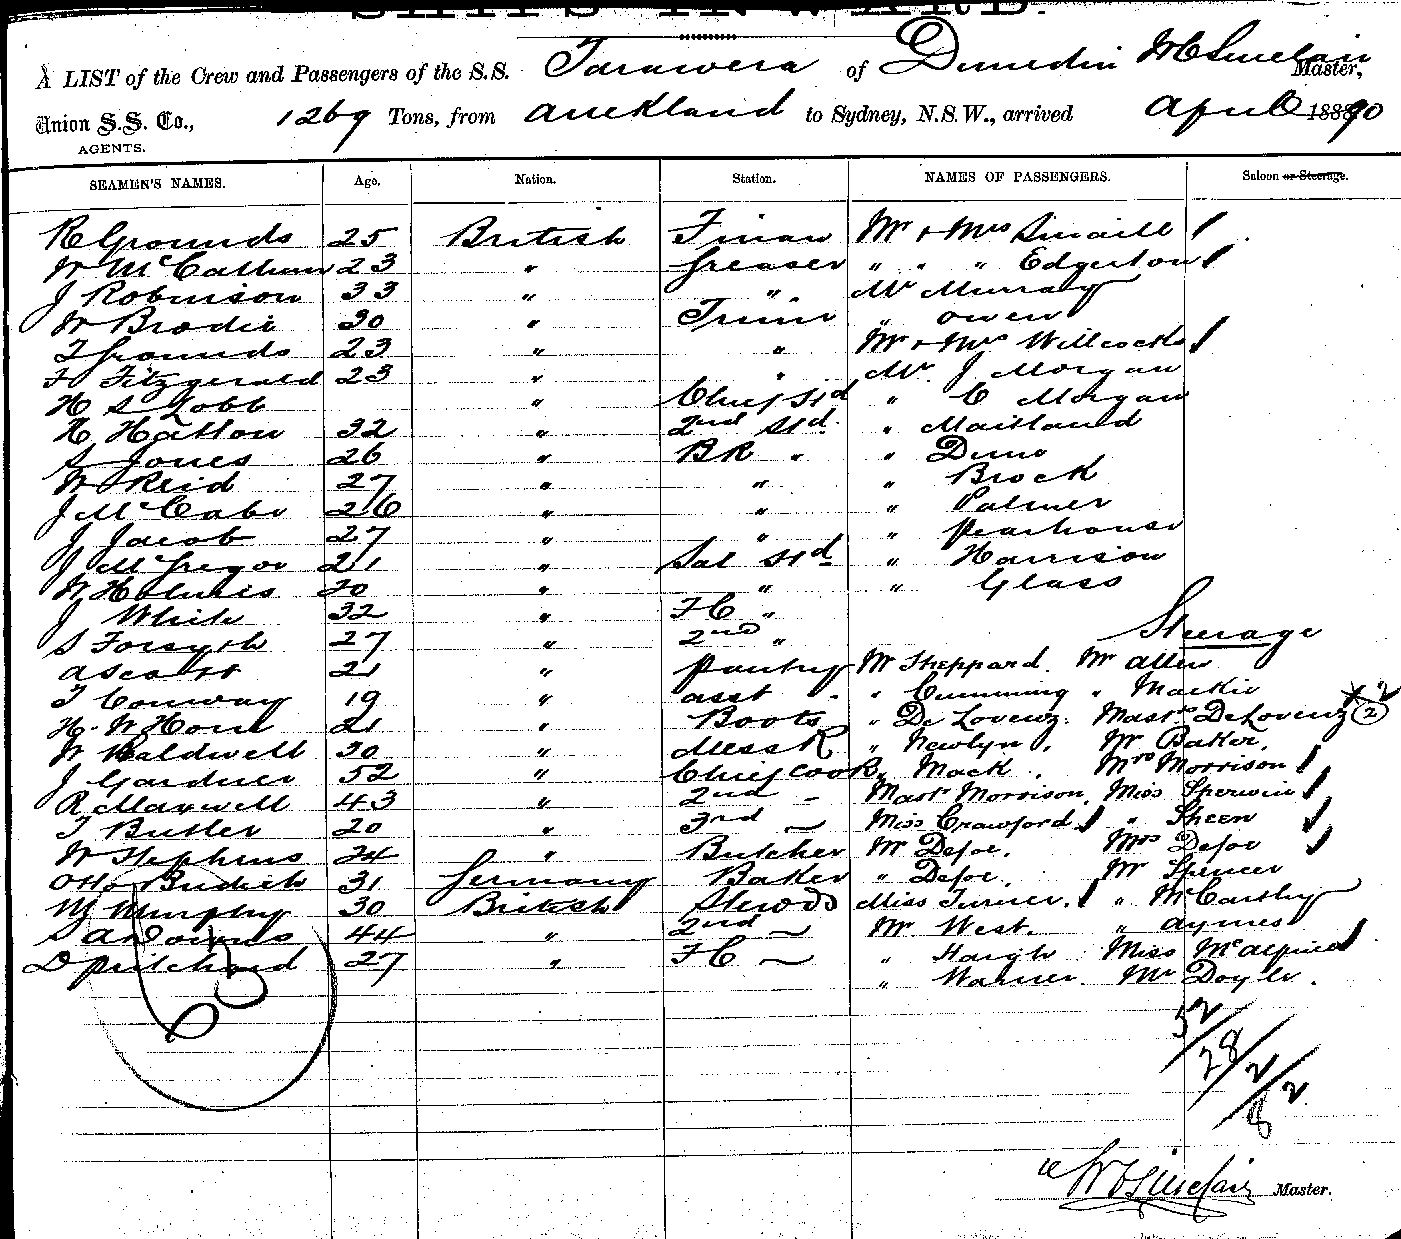 SHIPS INWARD.
A LIST of the Crew and Passengers of the S.S. Tarawera of Dunedin W C Sinclair Master,
Union S.S. Co., 1269 Tons, from Auckland to Sydney, N.S.W., arrived April 1890
AGENTS.
SEAMEN'S NAMES. Age. Nation. Station. NAMES OF PASSENGERS. Saloon or Steerage.
R Grounds 25 British Firman Mr + Mrs Smaill
W McCallum 23 " Greaser " " " Edgerton
J Robinson 33 " " Mr Murray
W Brodie 30 " Trimr " Owen
T Grounds 23 " " Mr + Mrs Willcocks
F Fitzgerald 23 " " Mr J Morgan
H S Lobb " Chief Std " C Morgan
R Hatton 32 " 2nd Std " Maitland
S Jones 26 " BR " "
W Reid 27 " " " Brock
J McCabe 26 " " " Palmer
J Jacob 27 " " " Pearhouse
J McGregor 21 " Sal Std " Harrison
W Holmes 20 " " " Glass
J White 32 " FC "
S Forsyth 27 " 2nd " Steerage
A Scott 21 " Pantry Mr Sheppard. Mr Allen
T Conway 19 " Asst " Cumming " Mackie 2
H. W Horn 21 " Boots " De Lovenz. Mastrs DeLovenz 2
W Waldwell 30 " Mess R " Newlyn, Mr Baker,
J Gardner 52 " Chief Cook " Mack. Mrs Morrison
R Maxwell 43 " 2nd - Mastr Morrison, Miss Sherwin
T Butler 20 " 3rd - Miss Crawford " Sheen
W Stephens 24 " Butcher Mr Defoe, Mrs Defoe
Otto Budich 31 Germany Baker " Defoe, Mr Spencer
M Murphy 30 British Stewdd Miss Turner. " McCarthy
44 " 2nd - Mr West. " Aymes
D Pritchard 27 " FC - " Haigh Miss McAlpine
" Warner. Mr Doyle.
52
28 2
8 2
W C Sinclair Master.